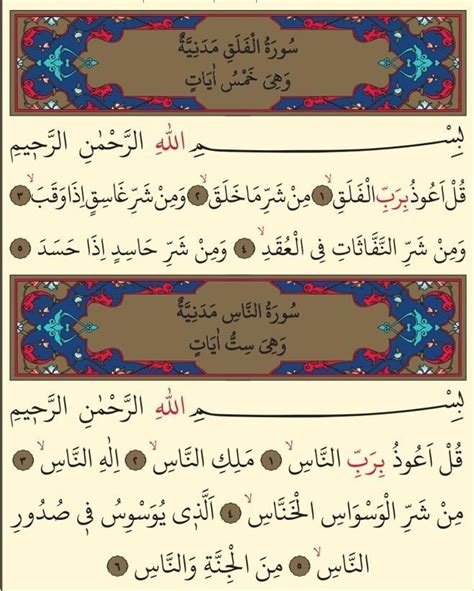 سُورَةُ الْفَلَقِ مَدَنِيَّةٌ
وَهِىَ خَمْسُ اٰيَاتٍ
بِسْمِ اللّٰهِ الرَّحْمٰنِ الرَّح۪يمِ
قُلْ اَعُوذُ بِرَبِّ الْفَلَقِۙ ﴿١﴾ مِنْ شَرِّ مَا خَلَقَۙ ﴿٢﴾ وَمِنْ شَرِّ غَاسِقٍ اِذَا وَقَبَۙ ﴿٣﴾
وَمِنْ شَرِّ النَّفَّاثَاتِ فِى الْعُقَدِۙ ﴿٤﴾ وَمِنْ شَرِّ حَاسِدٍ اِذَا حَسَدَ ﴿٥﴾
سُورَةُ النَّاسِ مَدَنِيَّةٌ
وَهِىَ سِتُّ اٰيَاتٍ
بِسْمِ اللّٰهِ الرَّحْمٰنِ الرَّح۪يمِ
قُلْ اَعُوذُ بِرَبِّ النَّاسِۙ ﴿١﴾ مَلِكِ النَّاسِۙ ﴿٢﴾ اِلٰهِ النَّاسِۙ ﴿٣﴾
مِنْ شَرِّ الْوَسْوَاسِ الْخَنَّاسِۙ ﴿٤﴾ اَلَّذ۪ى يُوَسْوِسُ ف۪ى صُدُورِ
النَّاسِۙ ﴿٥﴾ مِنَ الْجِنَّةِ وَالنَّاسِ ﴿٦﴾